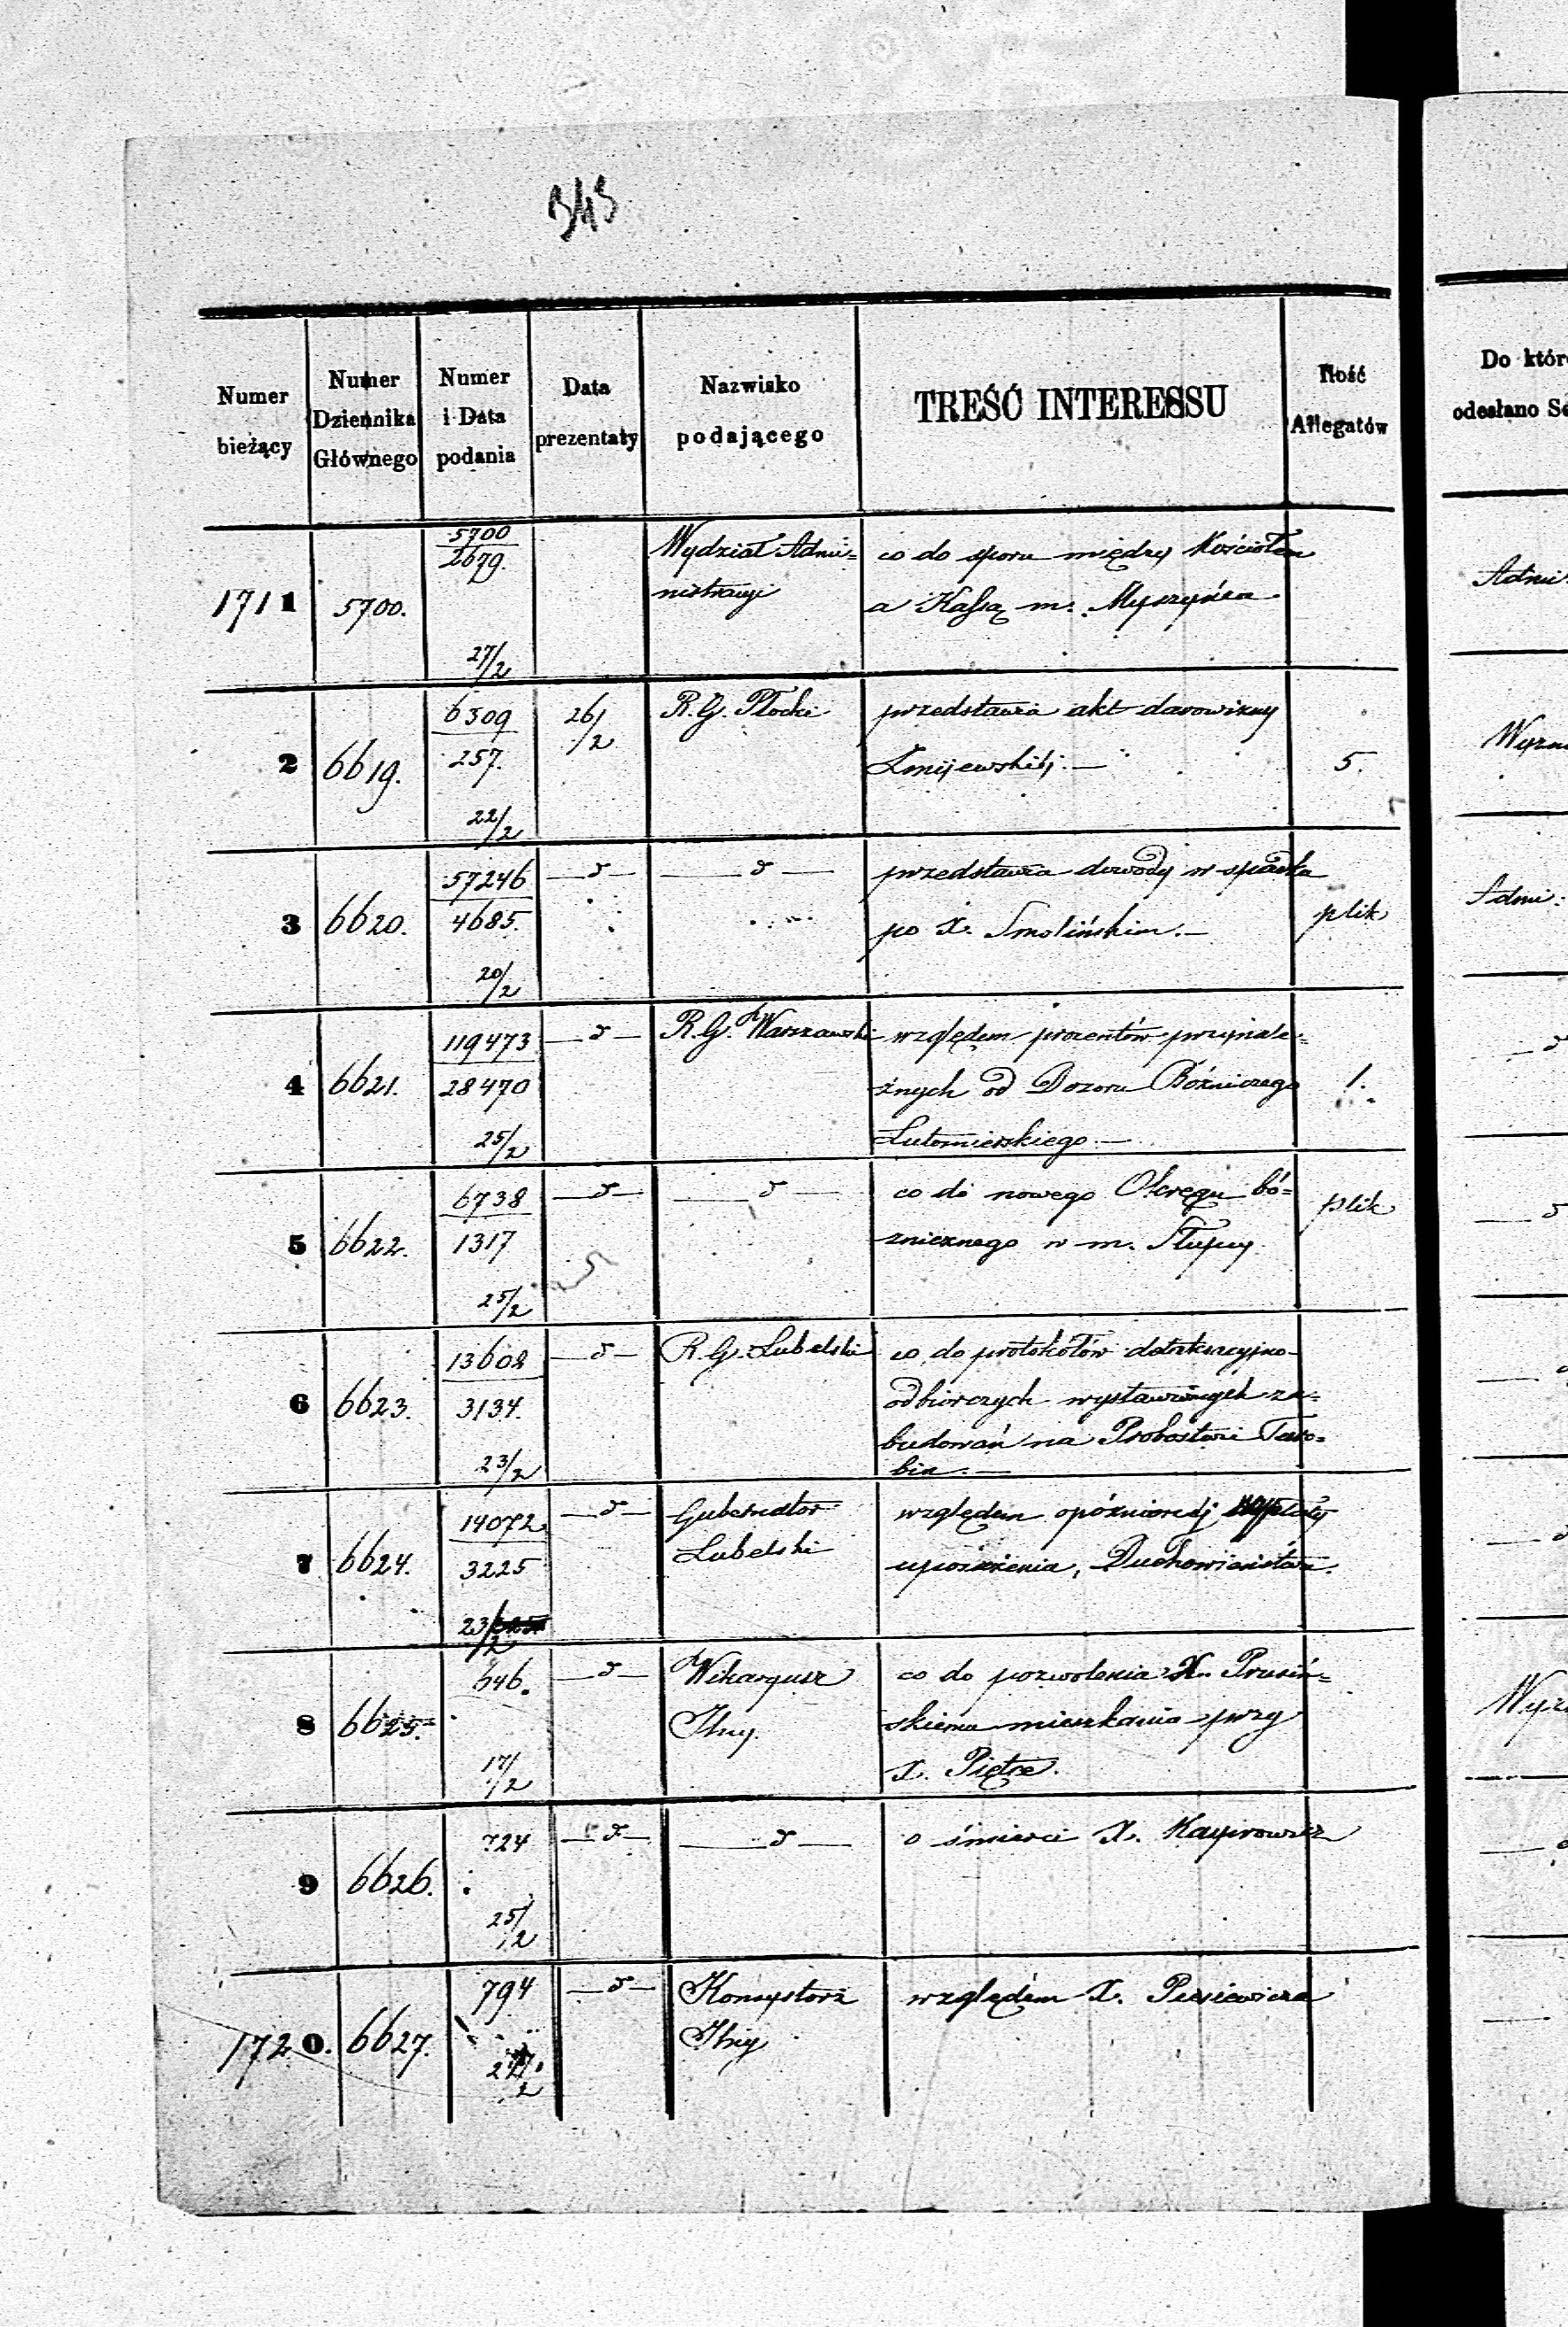 343
Numer bieżący
Numer Dziennika Głównego
Numer i Data podania
Data prezentaty
Nazwisko podającego
TREŚĆ INTERESSU
Ilość Allegatów
Do któr
odesłano Se
1711
5700.
5700
2679.
27/2
Wydział Admi=
nistracyi
co do sporu między Kościołem
a Kassą m. Myszyńca
Admi
2
6619.
6309
257.
22/2
26/2
R. G. Płocki
przedstawia akt darowizny
Żmijewskiéj. —
5.
3
6620.
57246
4685.
20/2
— d —
— d —
przedstawia dowody w spadku
po X. Smolińskim. —
plik
Admi:
4
6621.
119473
28470
25/2
— d —
R. G. Warszawski
względem procentów przynale=
żnych od Dozoru Bóżniczego
Lutomierskiego —
1.
5
6622.
6738
1317
25/2
— d —
— d —
co do nowego Okręgu bó=
żnicznego w m. Słupcy
plik
6
6623.
13608
3134.
23/2
— d —
R. G. Lubelski
co do protokółów
odbiorczych wystawionych za=
budowań na Probostwie Turo=
bin. —
7
6624.
14072
3225
23/2
— d —
Gubernator
Lubelski
względem opóźnionej wypłaty
uposażenia, Duchowieństwa.
8
6625.
646.
17/2
— d —
Wikaryusz
co do pozwolenia X. Prusiń=
skiemu mieszkania przy
X. Piętce.
9
6626.
724
25/2
— d —
— d —
o śmierci X.
1720.
6627.
794
— d —
Konsystorz
względem X.